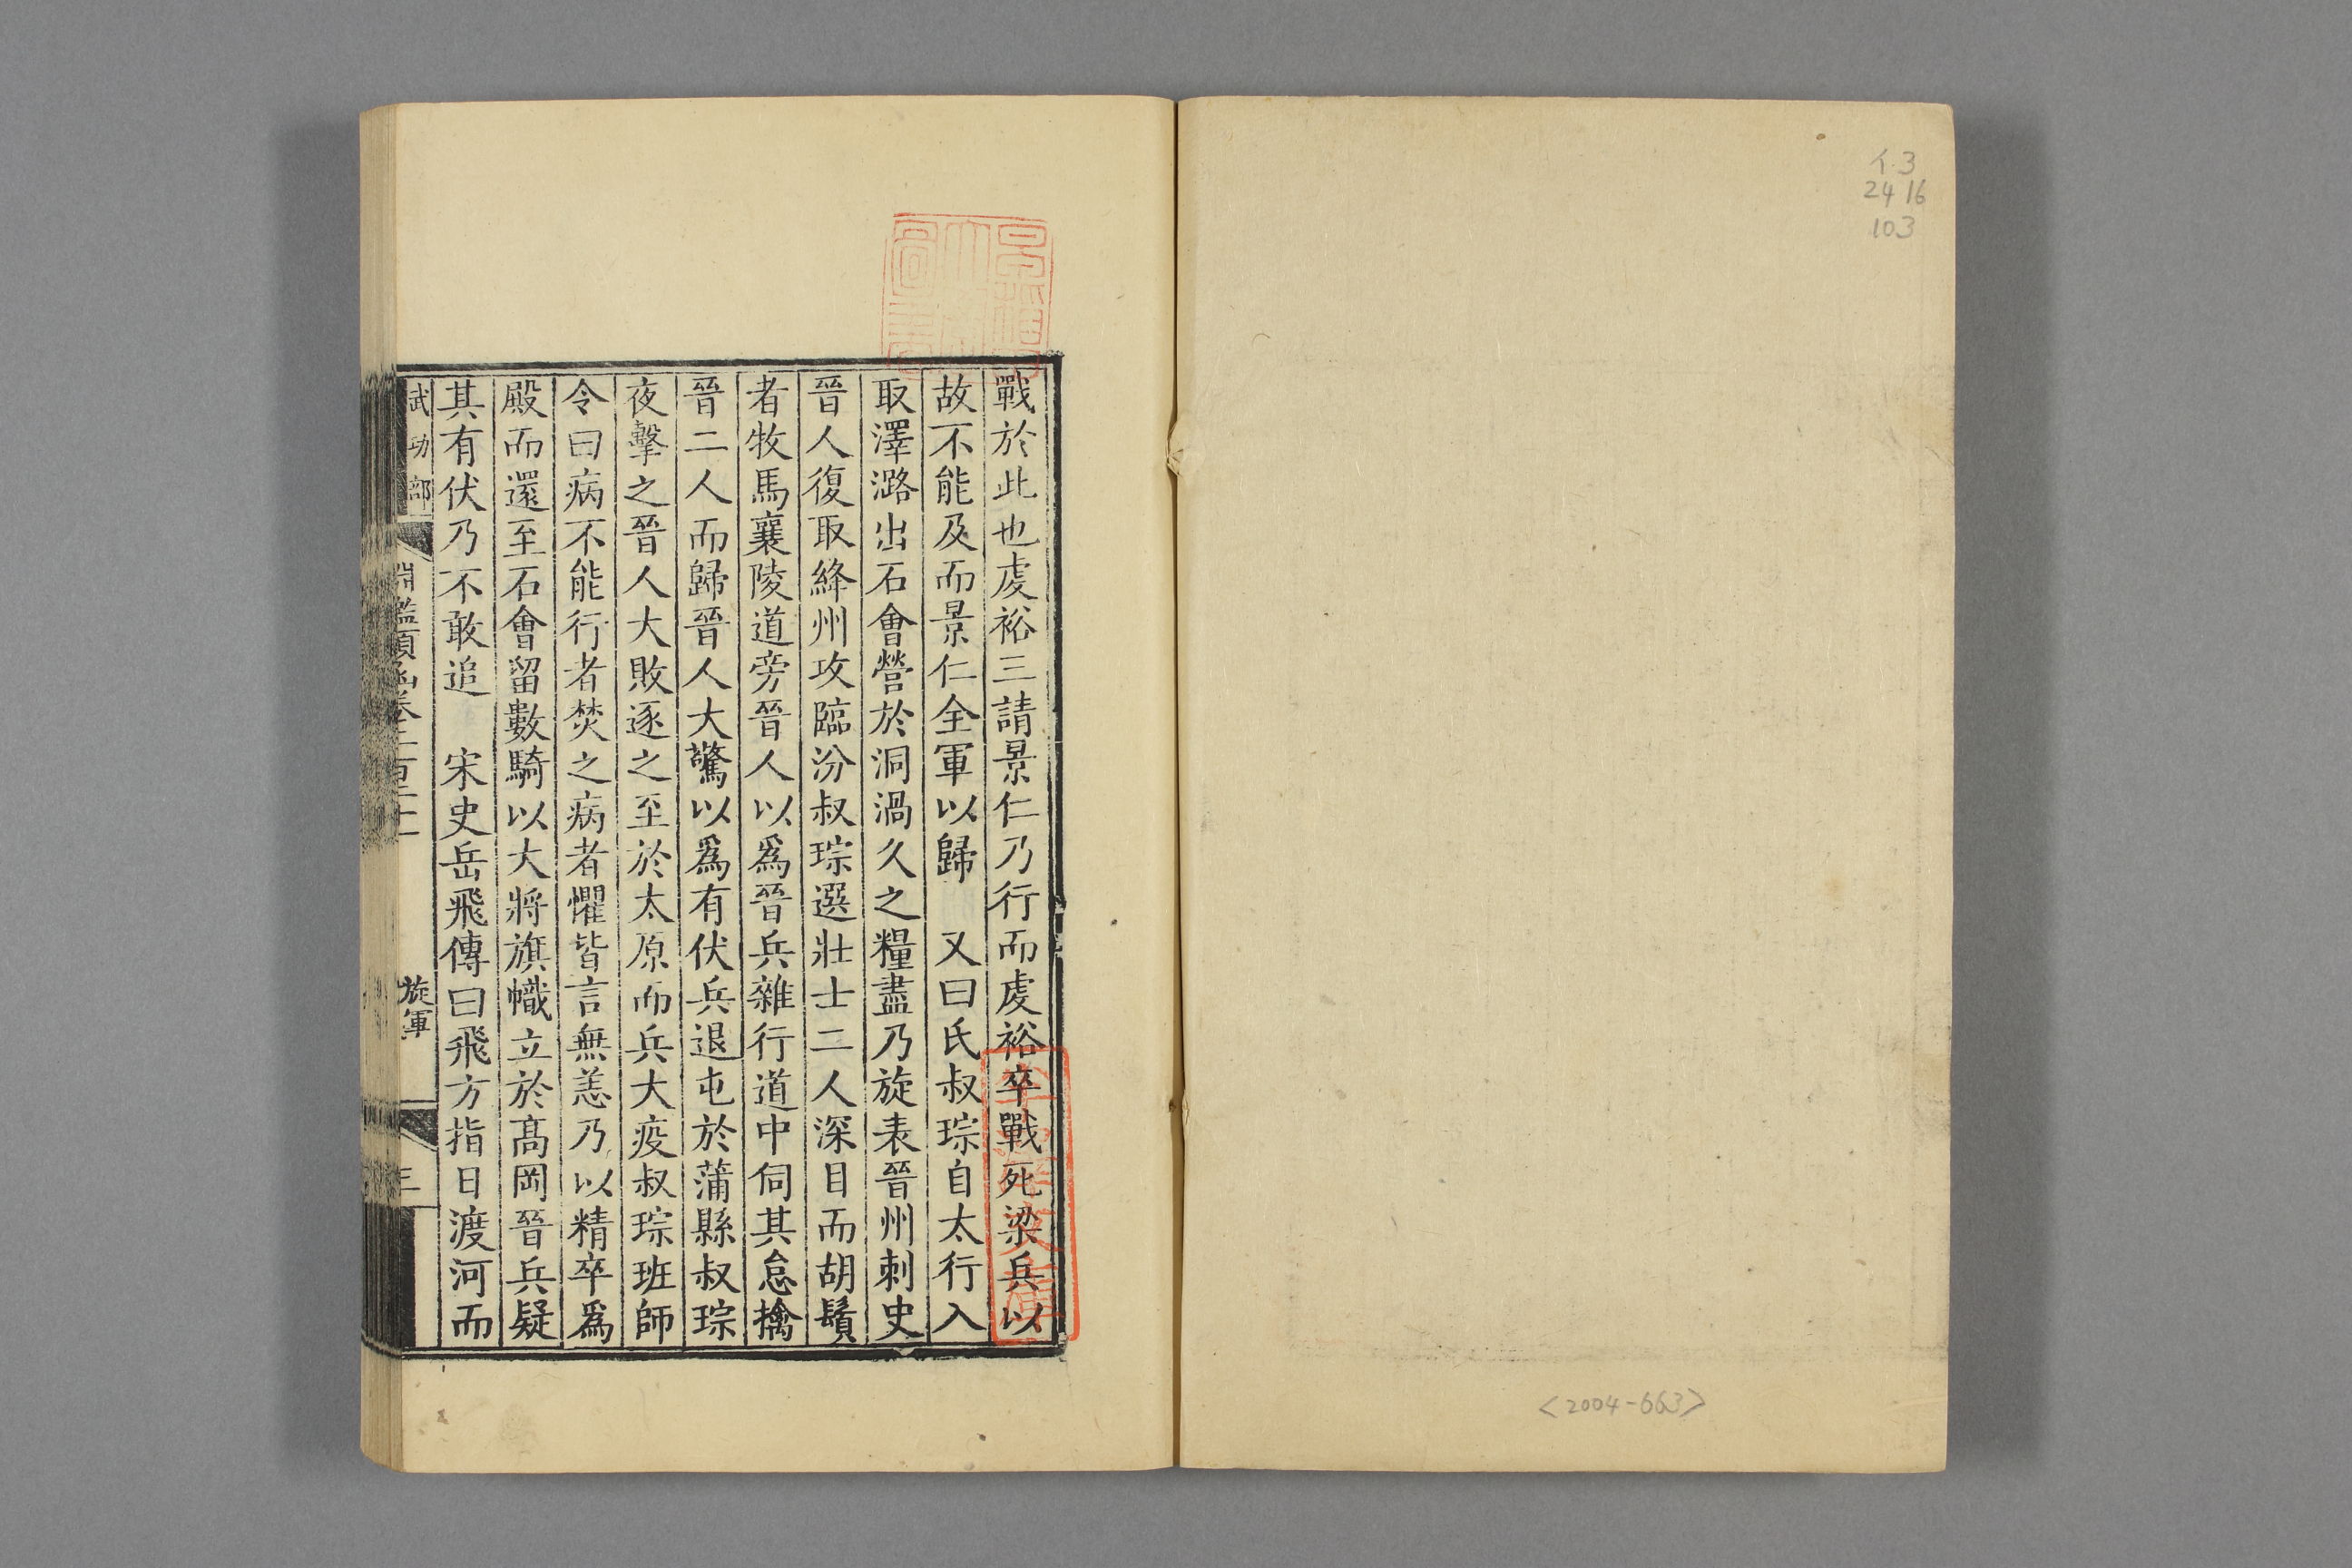 イ3
2416
103
<2004-663>
戰於此也虔裕三請景仁乃行而虔裕卒戰死梁兵以
故不能及而景仁全軍以歸　又曰氏叔琮自太行入
取澤潞出石會營於洞渦久之糧盡乃旋表晉州刺史
晉人復取絳州攻臨汾叔琮選壯士二人深目而胡鬚
者牧馬襄陵道旁晉人以爲晉兵雜行道中伺其怠擒
晉二人而歸晉人大驚以爲有伏兵退屯於蒲縣叔琮
夜擊之晉人大敗逐之至於太原而兵大疫叔琮班師
令曰病不能行者焚之病者懼皆言無恙乃以精卒爲
殿而還至石會留數騎以大將旗幟立於高岡晉兵疑
其有伏乃不敢追　宋史岳飛傳曰飛方指日渡河而
武功部　淵鑑類函卷二百二十　旋軍　三